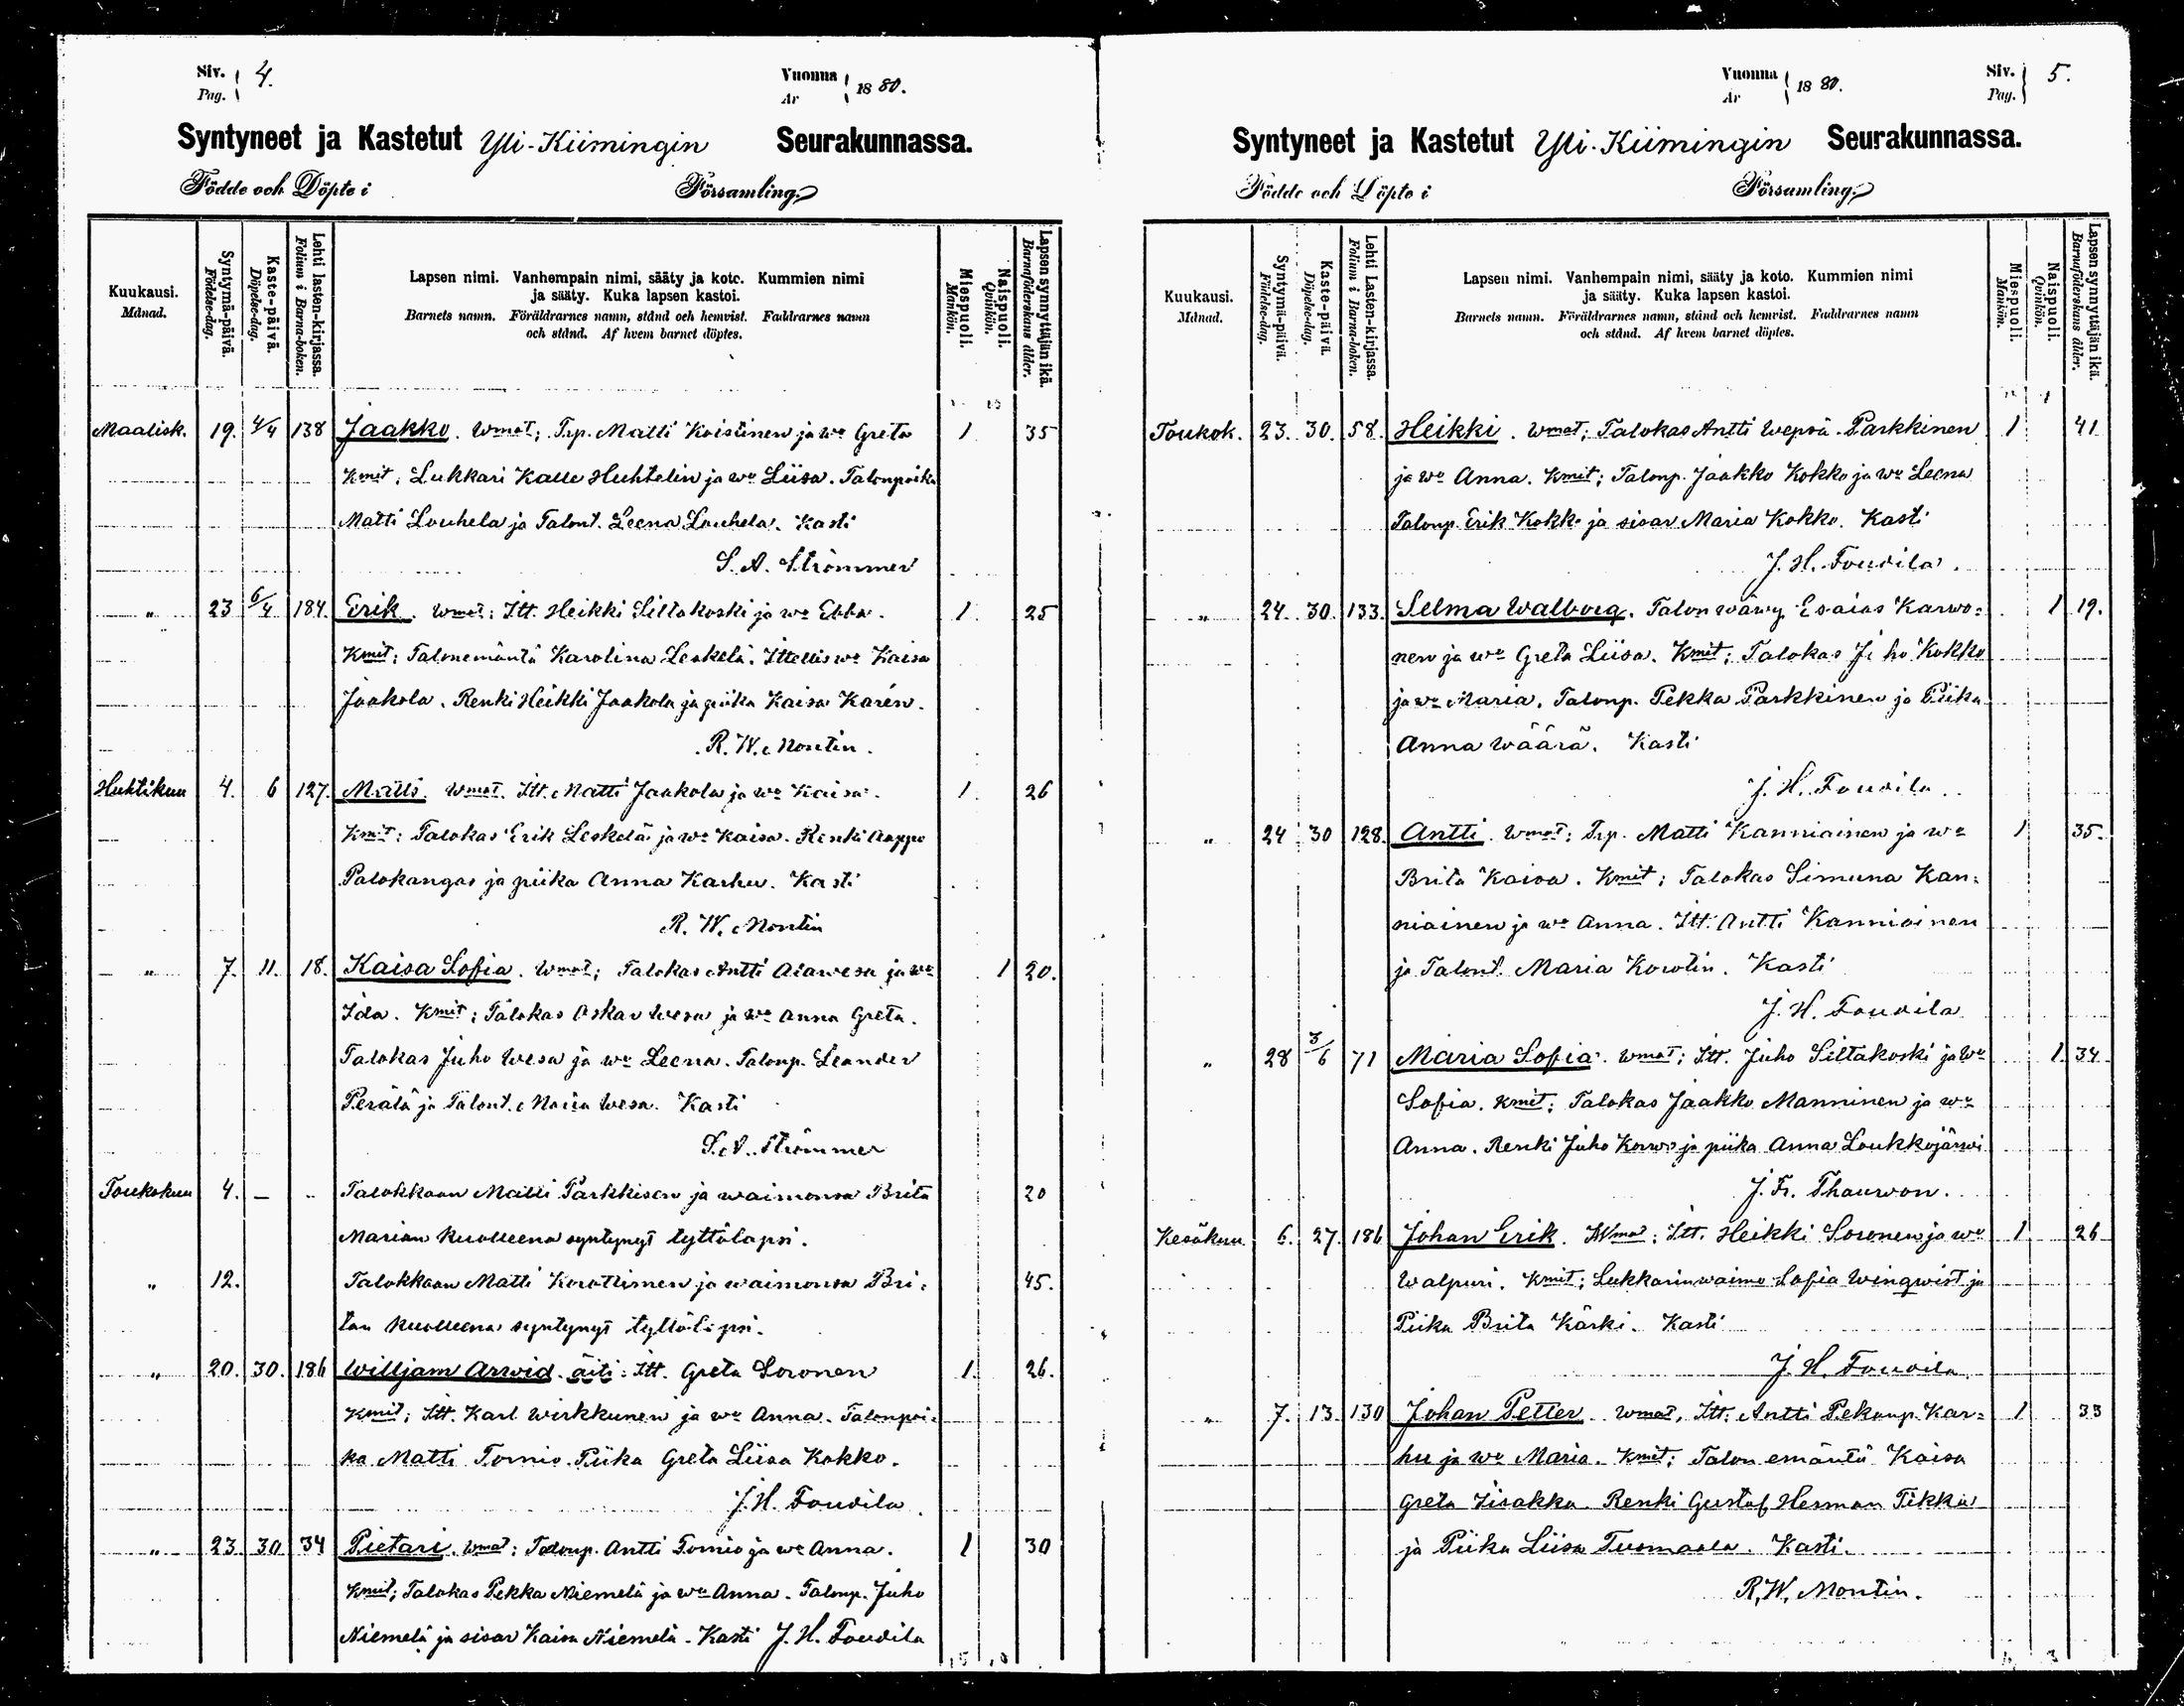 Siv. 4.
Pag.
Vuonna 1880.
År
Syntyneet ja Kastetut Yli-Kiimingin Seurakunnassa.
Födde och Döpte i Församling.
Kuukausi.
Månad.
Syntymä-päivä.
Födelse-dag.
Kaste-päivä.
Döpelse-dag.
Lehti lasten-kirjassa.
Folium i Barna-boken.
Lapsen nimi. Vanhempain nimi, sääty ja koto. Kummien nimi
ja sääty. Kuka lapsen kastoi.
Barnets namn. Föräldrarnes namn, stånd och hemvist. Faddrarnes namn
och stånd. Af hvem barnet döptes.
Miespuoli.
Mankön.
Naispuoli.
Qvinkön.
Lapsen synnyttäjän ikä.
Barnaföderskans ålder.
Maalisk. 19. 4/4 138 Jaakko. Wmat; Trp. Matti Koistinen ja wo Greta 1 35
Kmit; Lukkari Kalle Huhtelin ja wo Liisa. Talonpoika
Matti Louhela ja Talont. Leena Louhela. Kasti
S. A. Strömmer
" 23 6/4 184. Erik. Wmat; Itt. Heikki Siltakoski ja wo Ebba. 1. 25
Kmit; Talonemäntä Karolina Leskelä. Ittellis wo Kaisa
Jaakola. Renki Heikki Jaakola ja piika Kaisa Karén.
R. W. Montin.
Huhtikuu 4. 6 127. Matti. Wmat. Itt. Matti Jaakola ja wo Kaisa. 1. 26
Kmit; Talokas Erik Leskelä ja wo Kaisa. Renki Aappo
Palokangas ja piika Anna Karhu. Kasti
R. W. Montin
" 7. 11. 18. Kaisa Sofia. Wmat; Talokas Antti Alawesa ja wo 1 20.
Ida. Kmit; Talokas Oskar Wesa ja wo Anna Greta.
Talokas Juho Wesa ja wo Leena. Talonp. Leander
Perälä ja Talont. Maria Wesa. Kasti
S. A. Strömmer
Toukokuu 4. – Talokkaan Matti Parkkisen ja waimonsa Brita 20
Marian kuolleena syntynyt tyttölapsi.
" 12. Talokkaan Matti Korottimen ja waimonsa Bri= 45.
tan kuolleena syntynyt tyttölapsi.
" 20. 30. 186 Willjam Arwid. äiti: Itt. Greta Soronen 1. 26.
Kmit; Itt. Karl Wirkkunen ja wo Anna. Talonpoi=
ka Matti Tornio. Piika Greta Liisa Kokko.
J. H. Fouvila
" 23. 30 34 Pietari. Wmat; Talonp. Antti Tornio ja wo Anna. 1 30
Kmit; Talokas Pekka Niemelä ja wo Anna. Talonp. Juho
Niemelä ja sisar Kaisa Niemelä. Kasti J. H. Fouvila
Vuonna 1880.
År
Siv. 5.
Pag.
Syntyneet ja Kastetut Yli-Kiimingin Seurakunnassa.
Födde och Döpte i Församling.
Kuukausi.
Månad.
Syntymä-päivä.
Födelse-dag.
Kaste-päivä.
Döpelse-dag.
Lehti Lasten-kirjassa.
Folium i Barna-boken.
Lapsen nimi. Vanhempain nimi, sääty ja koto. Kummien nimi
ja sääty. Kuka lapsen kastoi.
Barnets namn. Föräldrarnes namn, stånd och hemvist. Faddrarnes namn
och stånd. Af hvem barnet döptes.
Miespuoli.
Mankön.
Naispuoli.
Qvinkön.
Lapsen synnyttäjän ikä.
Barnaföderskans ålder.
Toukok. 23. 30. 58. Heikki. Wmat; Talokas Antti Wepsä-Parkkinen 1 41
ja wo Anna. Kmit; Talonp. Jaakko Kokko ja wo Leena
Talonp. Erik Kokko ja sisar Maria Kokko. Kasti
J. H. Fouvila.
" 24. 30. 133. Selma Walborg. Talon wäwy Esaias Karwo= 1 19.
nen ja wo Greta Liisa. Kmit; Talokas Juho Kokko
ja wo Maria. Talonp. Pekka Parkkinen ja Piika
Anna Wäärä. Kasti
J. H. Fouvila.
" 24 30 128. Antti. Wmat; Trp. Matti Kanniainen ja wo 1 35.
Brita Kaisa. Kmit; Talokas Simuna Kan=
niainen ja wo Anna. Itt. Antti Kanniainen
ja Talont. Maria Korotin. Kasti
J. H. Fouvila
" 28 3/6 71 Maria Sofia. Wmat; Itt. Juho Siltakoski ja wo 1. 34
Sofia. Kmit; Talokas Jaakko Manninen ja wo
Anna. Renki Juho Korwo ja piika Anna Loukkojärwi
J. Fr. Thauvon.
Kesäkuu. 6. 27. 186 Johan Erik. Wmat; Itt. Heikki Soronen ja wo 1 26
Walpuri. Kmit; Lukkarinwaimo Sofia Winqwist ja
Piika Brita Kärki. Kasti
J. H. Fouvila.
" 7. 13. 130 Johan Petter. Wmat, Itt. Antti Pekanp. Kar= 1 33
hu ja wo Maria. Kmit; Talon emäntä Kaisa
Greta Iisakka. Renki Gustaf Herman Tikka
ja Piika Liisa Tuomaala. Kasti.
R. W. Montin.